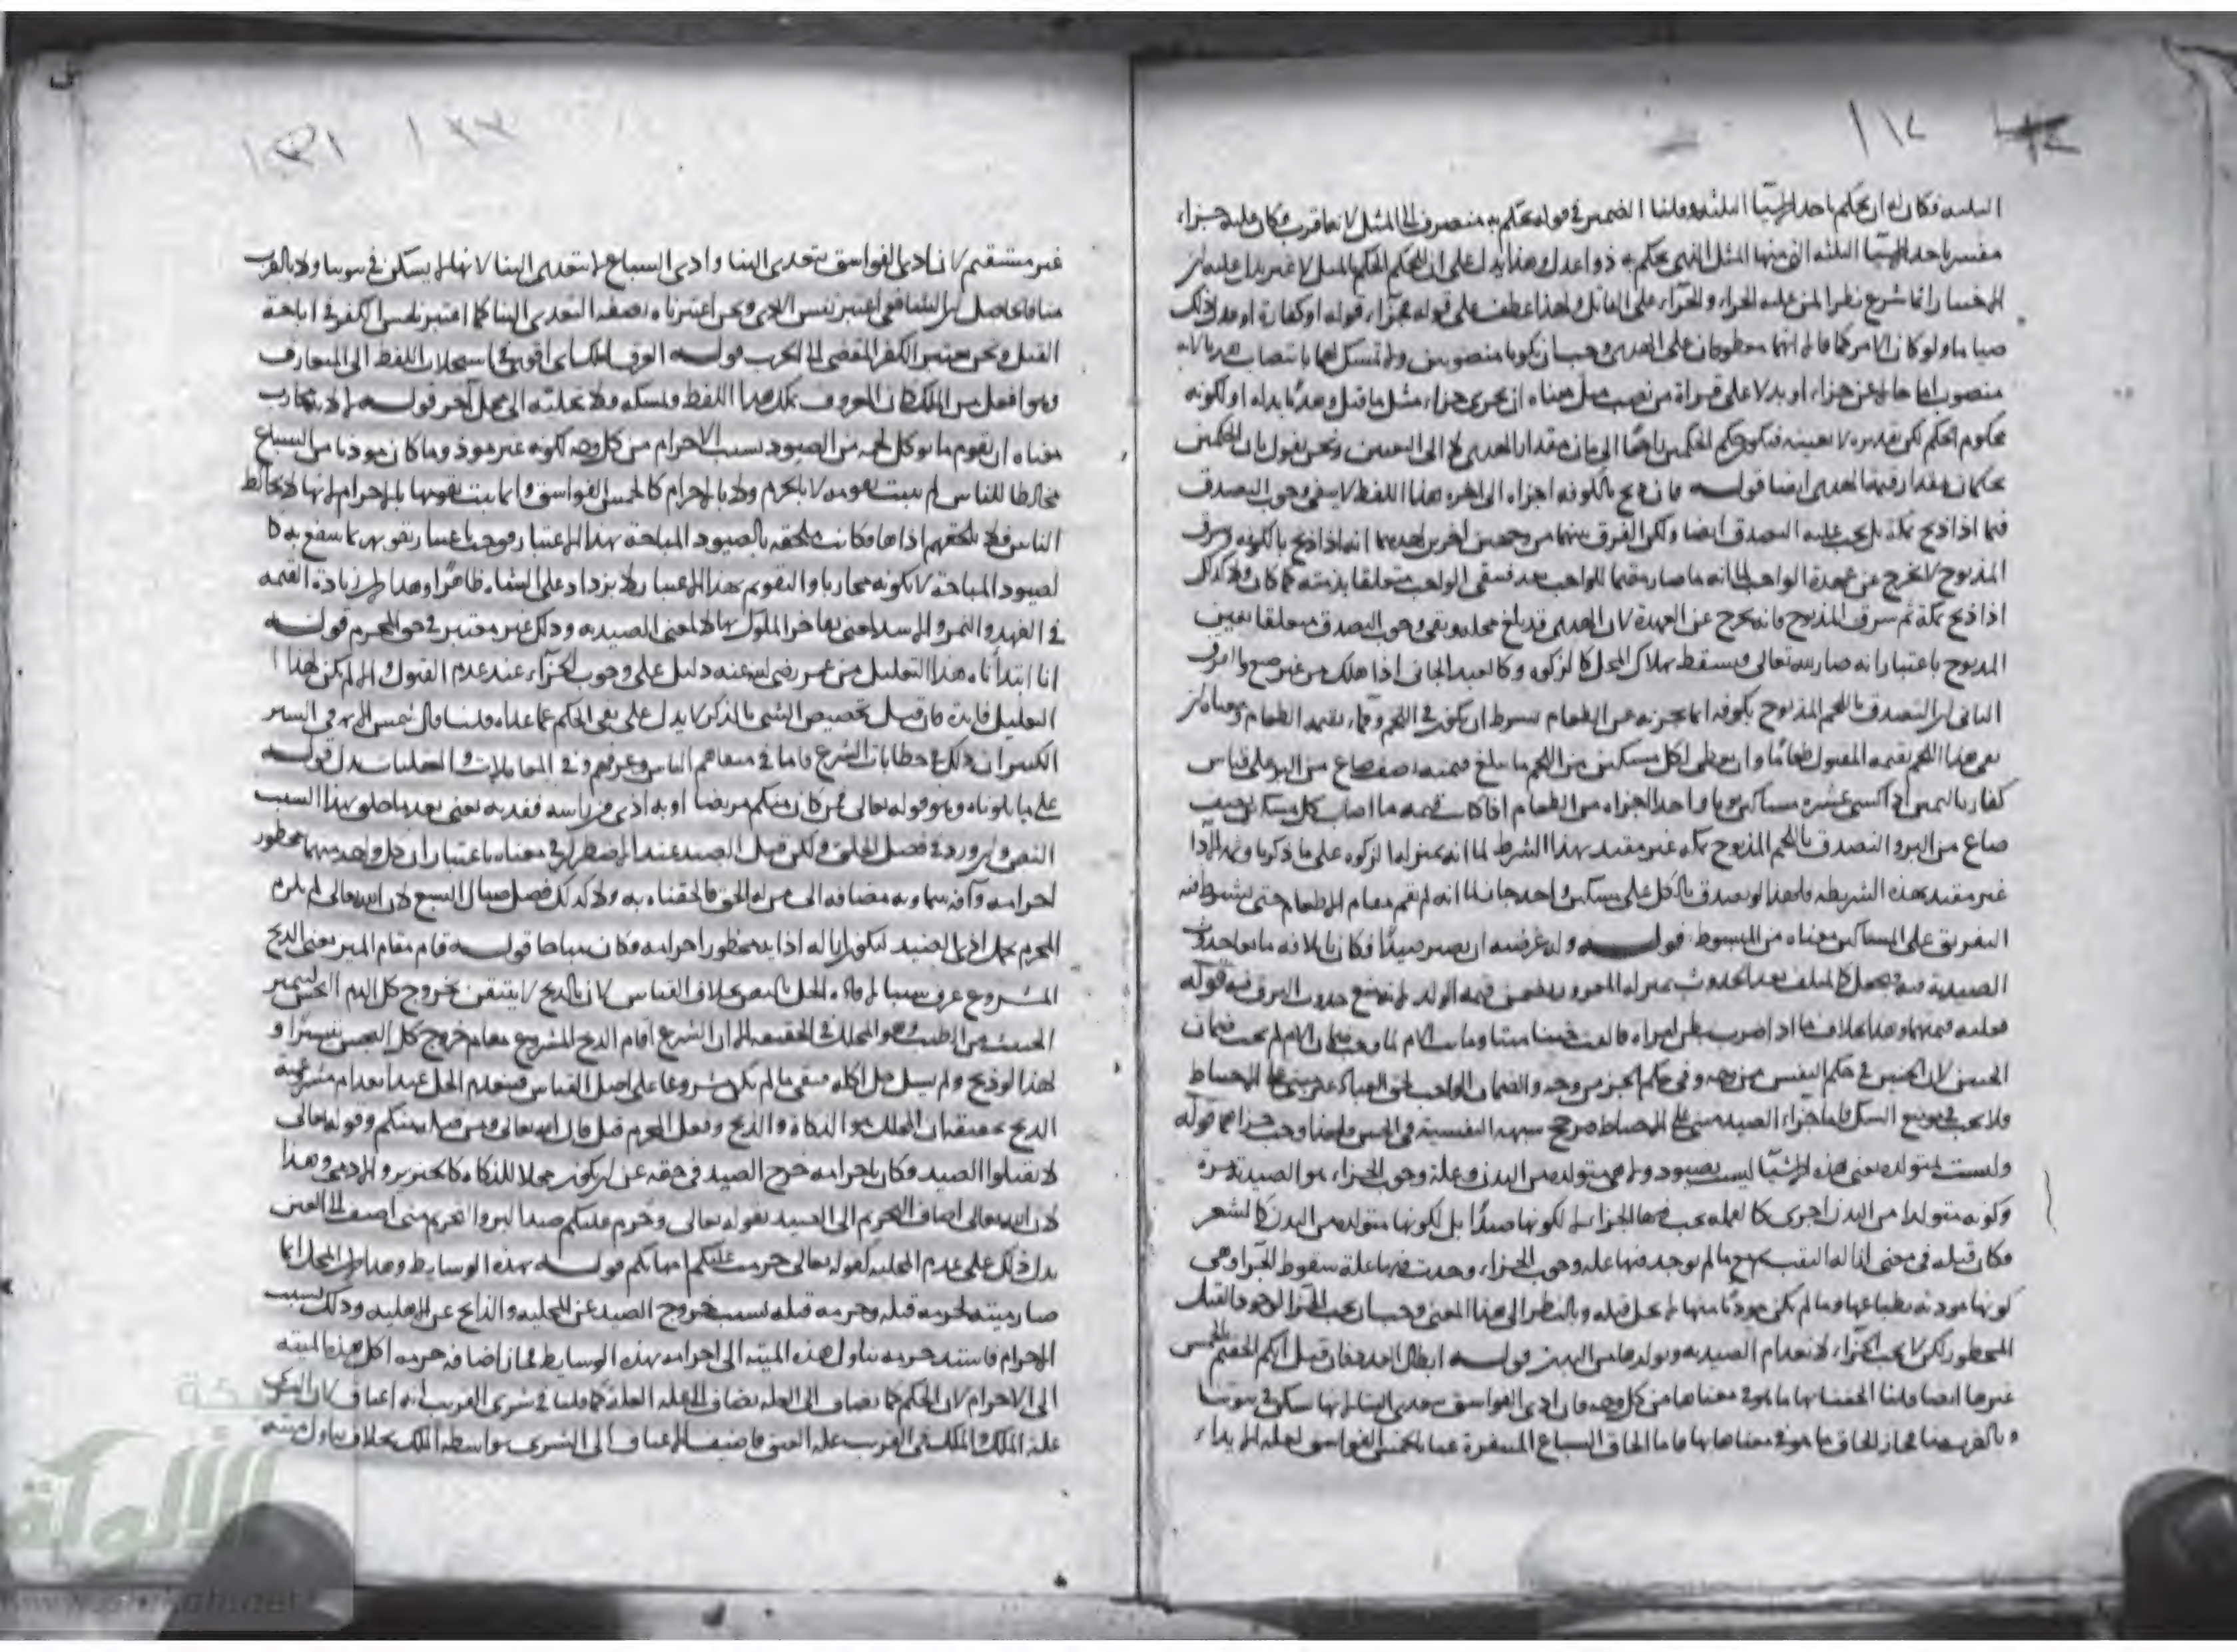 الثلثة فكان له ان يحكم باحد الاشيا الثلثة وقلنا الضمير في قوله يحكم به منصرف الى المثل لانها قرب فكان عليه جزاء
مفسر باحد الاشيا الثلثة التي منها المثل الذي يحكم به ذوا عدل وهذا يدل على ان الحكم المثل لا غير يدل عليه ان
انما شرع نظرا لمن عليه الجزاء والجزاء على القاتل ولهذا عطف على قوله فجزاء قوله او كفارة او عدل ذلك
صياما ولو كان الامر كما قال انهما معطوفان على الهدي وجب ان يكونا منصوبين ولا تمسك لهما بانتصاب هديا لانه
منصوب اما حالا عن جزاء او بدلا على قراة من نصب مثل معناه ان يجزي جزاء مثل ما قتل وهديا بدله او لكونه
محكوم الحكم لكن تقديره لا بعينه فيكون حكم الحكمين راجعا الى بيان مقدار الهدي لا الى التعيين ونحن نقول بان الحكمين
يحكمان مقدار قيمة الهدي ايضا قوله فان ذبح بالكوفة اجزاه الى اخره هذا اللفظ لا ينفي وجوب التصدق
فيما اذا ذبح بمكة بل يجب عليه التصدق ايضا ولكن الفرق بينهما من وجهين اخرين احدهما انه اذا ذبح بالكوفة وسرق
المذبوح لا يخرج عن عهدة الواجب لانه ما صار مقيما للواجب بعد فبقى الواجب متعلقا بذمته كما كان ولا كذلك
اذا ذبح بمكة ثم سرق المذبوح فانه يخرج عن العهدة لان الهدي قد بلغ محله وبقى وجوب التصدق متعلقا بعين
المذبوح باعتبار انه صار لله تعالى فيسقط بهلاك المحل كالزكوة وكالعبد الجاني اذا هلك من غير صنع والفرق
الثاني ان التصدق باللحم المذبوح بكوفة انما يجزيه عن الطعام بشرط ان يكون في اللحم وفاء بقيمة الطعام ومعناه ان
يفي هذا اللحم بقيمة المقتول طعاما وان يعطى لكل مسكين من اللحم ما يبلغ قيمته نصف صاع من البر على قياس
كفارة اليمين اذا كسى عشرة مساكين ثوبا واحدا اجزاه من الطعام اذا كانت قيمة ما اصاب كل مسكين نصف
صاع من البر والتصدق باللحم المذبوح بمكة غير مقيد بهذا الشرط لما انه بمنزلة الزكوة على ما ذكرنا
غير مقيد بهذه الشريطة فلهذا لو تصدق بالكل على مسكين واحد جاز لما انه لم يقم مقام الاطعام حتى يشترط فيه
التفريق على المساكين معناه من المبسوط قوله وله عرضية ان يصير صيدا فكان باتلافه مانعا حدوث
الصيدية فيه فيجعل كالمتلف بعد الحدوث بمنزلة المغرور يضمن قيمة الولد لانه منع حدوث الرق فيه قوله
فعليه قيمتهما وهذا بخلاف ما اذا ضرب بطن امراة فالقت جنينا ميتا وماتت الام لما وجب ضمان الام لم يجب ضمان
الجنين لان الجنين في حكم النفس من وجه وفي حكم الجزء من وجه والضمان الواجب لحق العباد غير مبني على الاحتياط
فلا يجب في موضع الشك فاما جزاء الصيد مبني على الاحتياط فرجح شبهة النفسية في الجنين ولهذا وجب جزاهما قوله
وليست بمتولدة يعني هذه الاشيا ليست بصيود ولا هي متولدة من البدن وعلة وجوب الجزاء هو الصيدية مرة
وكونه متولدا من البدن اخرى كالقملة يجب فيها الجزاء لا لكونها صيدا بل لكونها متولدة من البدن كالشعر
فكان قتله في معنى ازالة التفث ومع ما لم يوجد فيها علة وجوب الجزاء وجدت فيها علة سقوط الجزاء وهي
كونها موذية بطباعها وما لم يكن موذيا منها لا يحل قتله وبالنظر الى هذا المعنى وجب ان يجب الجزاء لوجود القتل
المحظور لكن لا يجب الجزاء لانعدام الصيدية وتولدها من البدن قوله ابطال العدد فان قيل انكم الحقتم بالخمس
غيرها ايضا قلنا الحقنا بها ما هو في معناها من كل وجه فان اذى الفواسق يتعدى الينا لانها تسكن في بيوتنا
وبالقرب منا فجاز الحاق ما هو في معناها بها فاما الحاق السباع المنفردة عنا بالخمس الفواسق لعلة الايذاء
غير مستقيم لان اذى الفواسق يتعدى الينا واذى السباع لا يتعدى الينا لانها لا تسكن في بيوتنا ولا بالقرب
منا فالحاصل ان الشافعي اعتبر نفس الاذى ونحن اعتبرناه بصفة التعدي الينا كما اعتبر نفس الكفر في اباحة
القتل ونحن نعتبر الكفر المفضي الى الحرب قوله العرف املك اي اقوى في استجلاب اللفظ الى المتعارف
وهو افعل من الملك كان المعروف يملك هذا اللفظ ويمسكه ولا يخليه الى محل آخر قوله لا لانه محارب
معناه ان تقوم ما يوكل لحمه من الصيود بسبب الاحرام من كل وجه لكونه غير موذ وما كان موذيا من السباع
مخالطا للناس لم يثبت تقومه لا بالحرم ولا بالاحرام كالخمس الفواسق وانما يثبت تقومها بالاحرام لانها لا تخالط
الناس فلا يلحقهم اذاها فكانت ملحقة بالصيود المباحة بهذا الاعتبار فوجب اعتبار تقومها بما ينتفع به كا
لصيود المباحة لا بكونه محاربا والتقوم بهذا الاعتبار لا يزداد على الشاة ظاهرا وهذا لان زيادة القيمة
في الفهد والنمر والاسد لمعنى تفاخر الملوك بها لا لمعنى الصيدية وذلك غير معتبر في حق المحرم قوله
انا ابتداناه هذا التعليل من عمر رضي الله عنه دليل على وجوب الجزاء عند عدم القتول والا لم يكن لهذا ا
لتعليل فايدة فان قيل تخصيص الشي بالذكر لا يدل على نفي الحكم عما عداه قلنا قال شمس الايمة في السير
الكبير ان ذلك في خطابات الشرع فاما في متفاهم الناس وعرفهم وفي المعاملات والعقليات يدل قوله
على ما تلوناه وهو قوله تعالى فمن كان منكم مريضا او به اذى من راسه ففدية يعني بعد ما حلق بهذا السبب
النص وان ورد في فصل الحلق ولكن قتل الصيد عند الاضطرار في معناه باعتبار ان كل واحد منهما محظور
احرامه وآفة سماوية مضافة الى من له الحق فالحقناه به ولا كذلك فصل صيال السبع لان الله تعالى لم يلزم
المحرم تحمل اذى الصيد ليكون اياله اذا به محظور احرامه فكان مباحا قوله قام مقام الميز يعني الذبح
المشروع عرف سببا لافادة الحل بالنص بخلاف القياس لان بالذبح لا يتيقن بخروج كل الدم النجس ليتميز
الخبيث من الطيب وهو المحلل في الحقيقة الا ان الشرع اقام الذبح المشروع مقام خروج كل النجس تيسيرا و
لهذا لو ذبح ولم يسل حل اكله فبقى ما لم يكن مشروعا على اصل القياس فينعدم الحل عند انعدام مشروعية
الذبح تحقيقه ان المحلل هو الذكاة والذبح وفعل المحرم قتل قال الله تعالى ومن قتله منكم وقوله تعالى
لا تقتلوا الصيد فكان باحرامه خرج الصيد في حقه عن ان يكون محلا للذكاة كالخنزير والادمي وهذا
لان الله تعالى اضاف التحريم الى الصيد بقوله تعالى وحرم عليكم صيد البر والتحريم متى اضيف الى العين
يدل ذلك على عدم المحلية كقوله تعالى حرمت عليكم امهاتكم قوله بهذه الوسايط وهذا لان المحل انما
صار ميتة لحرمة قتله وحرمة قتله بسبب خروج الصيد عن المحلية والذابح عن الاهلية وذلك بسبب
الاحرام فاستند حرمة تناول هذه الميتة الى احرامه بهذه الوسايط فجاز اضافة حرمة اكل هذه الميتة
الى الاحرام لان الحكم كما يضاف الى العلة يضاف الى علة العلة كما قلنا في شرى القريب انه اعتاق لان الشرى
علة الملك والملك في القريب علة العتق فاضيف الاعتاق الى الشرى بواسطة الملك بخلاف تناول ميتة
شبكة
الألوكة
www.alukah.net